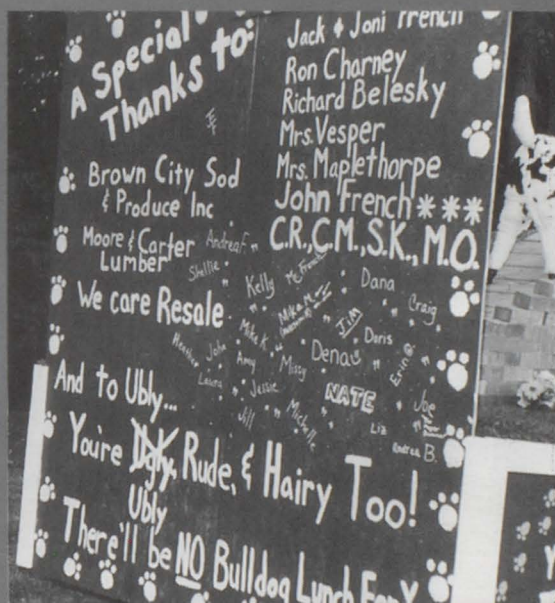 A Special
Thanks to:
Brown City Sod
& Produce Inc
Moore & Carter
Lumber
We care Resale
Jack & Joni French
Ron Charney
Richard Belesky
Mrs. Vesper
Mrs. Maplethorpe
John French ***
C.R., C.M., S.K., M.O.
Andrea F.
Shellie
Kelly
Mr. French
Dana
Craig
Mika M.
Jim
Mike K.
Doris
Heather
John
Amy
Dena
Erin B.
Laura
Jessie
Missy
NATE
Joe
Jill
Michelle
Liz
Andrea B.
And to Ubly...
You're Ugly, Rude, & Hairy Too!
Ubly
There'll be NO Bulldog Lunch For